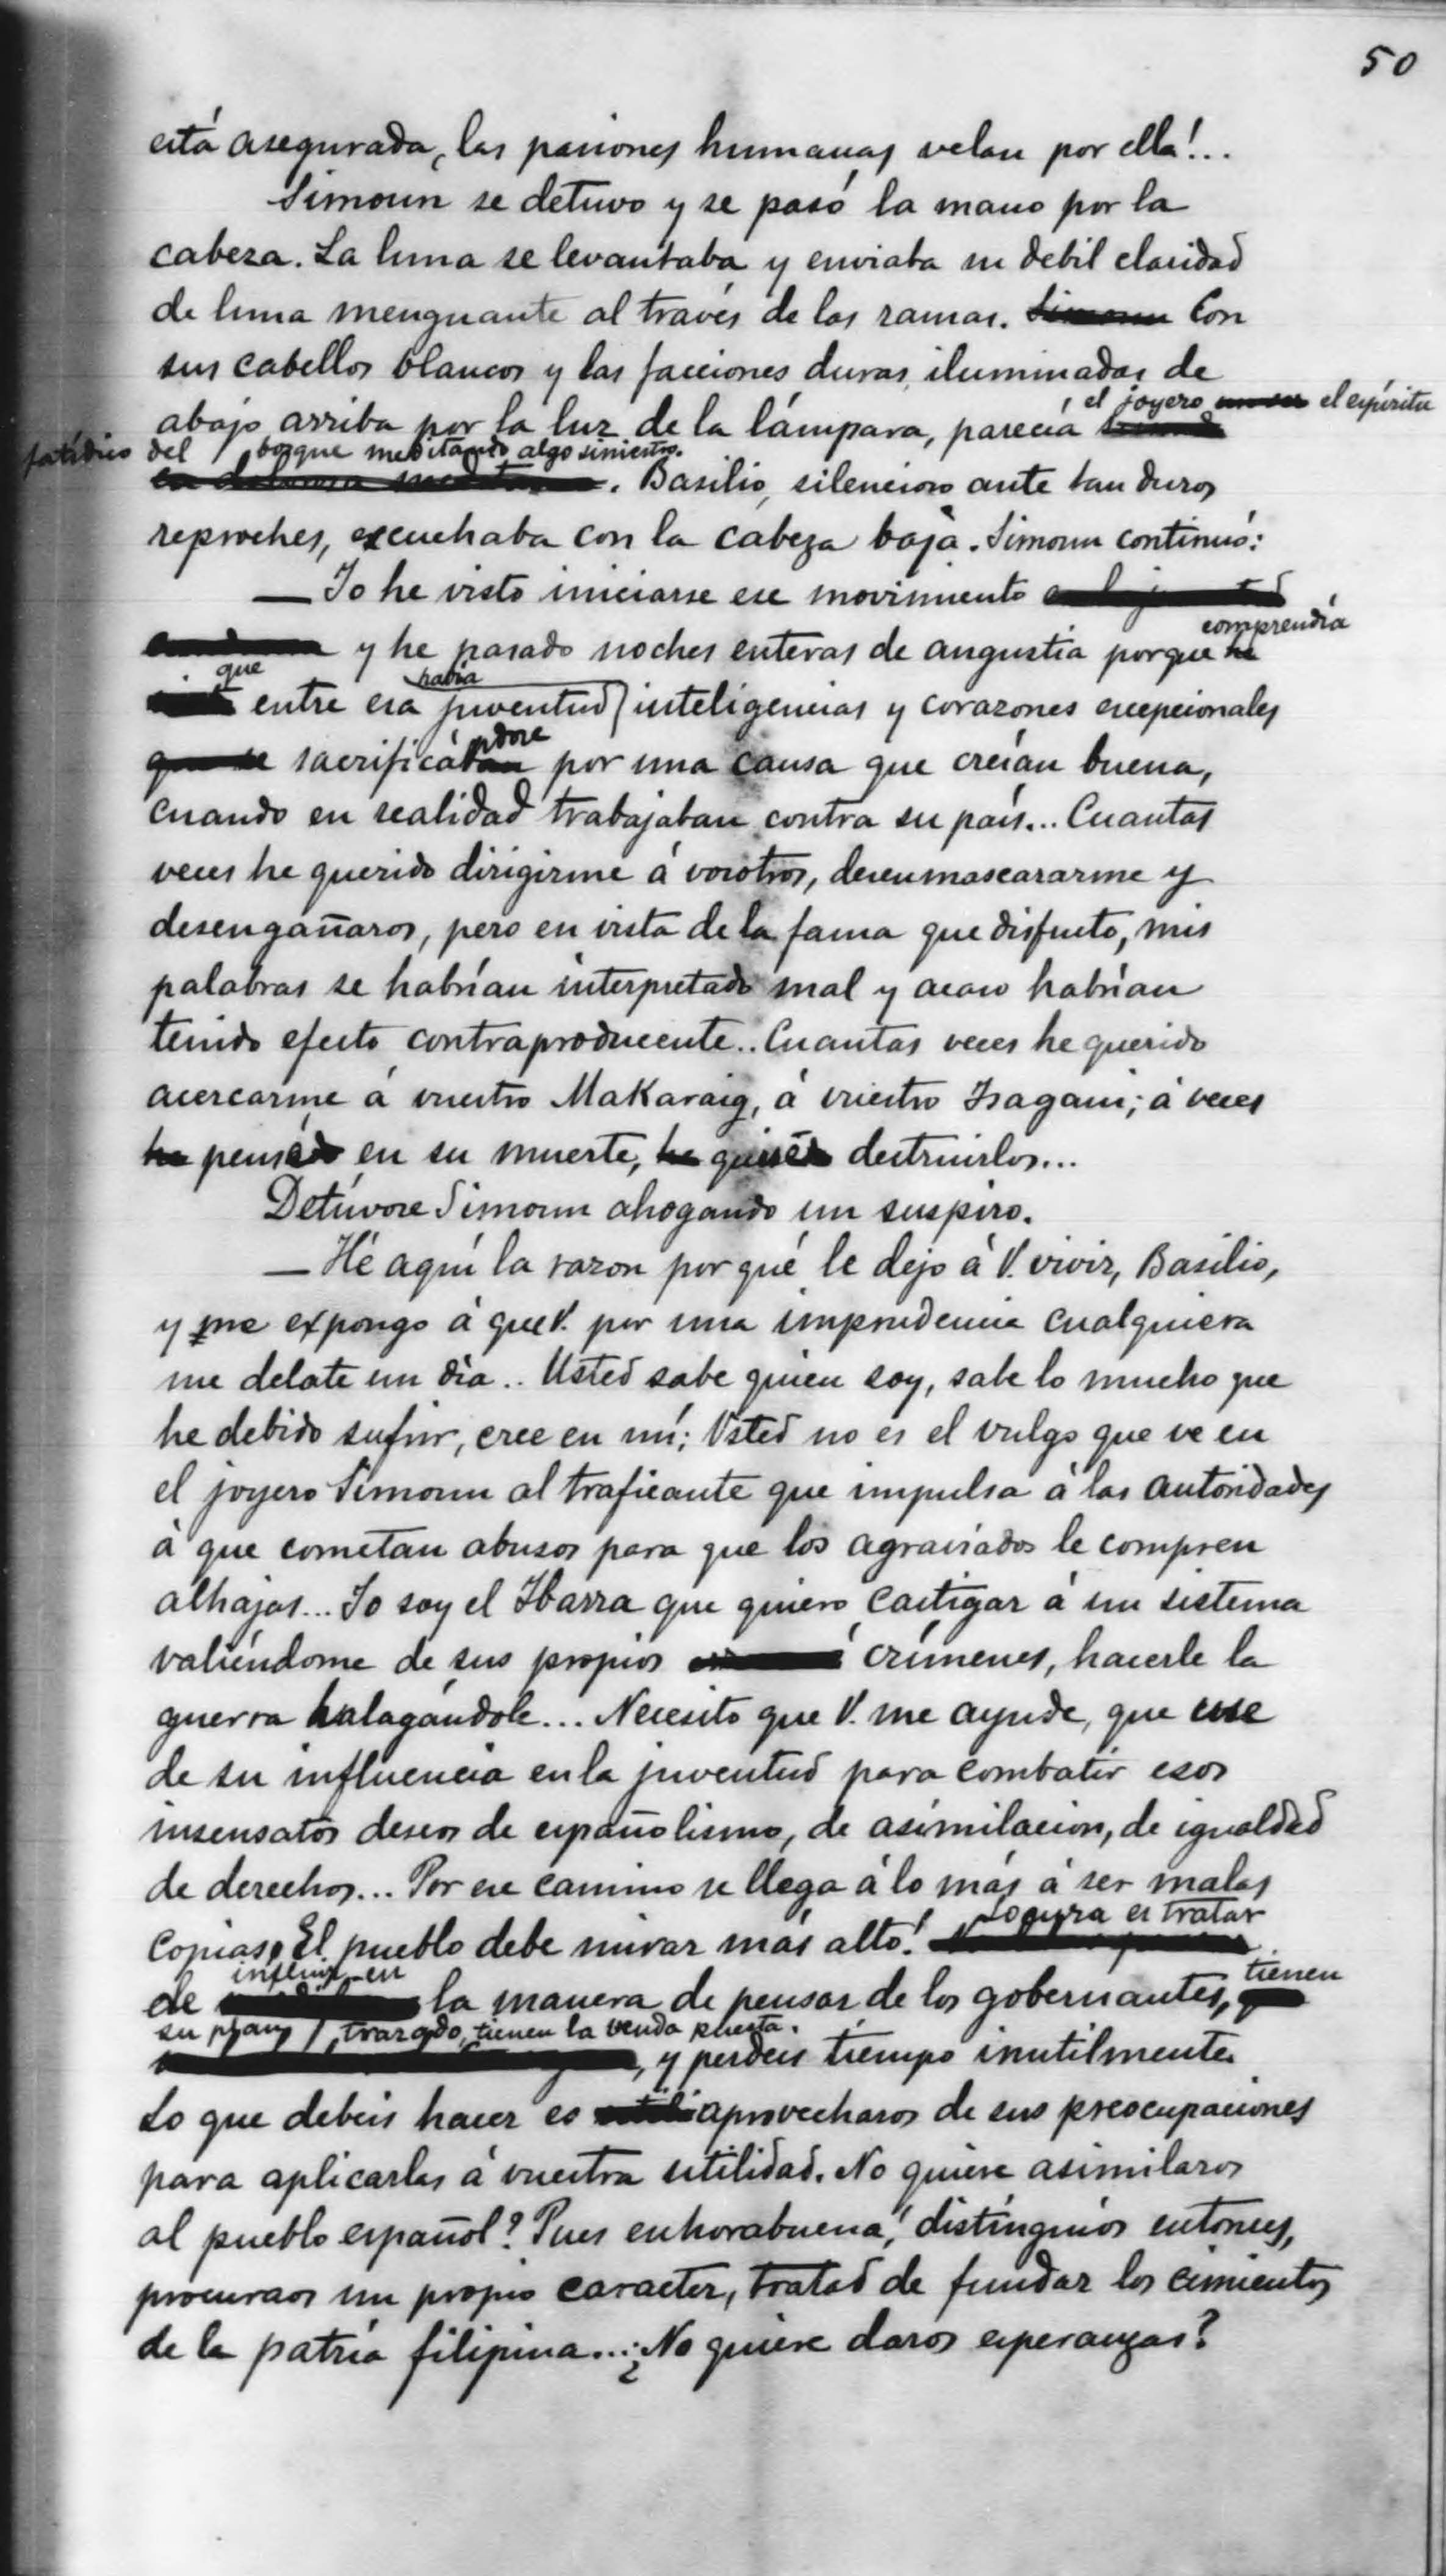 50
está asegurada, las pasiones humanas velan por ella!...
Simoun se detuvo y se pasó la mano por la
cabeza. La luna se levantaba y enviaba su debil claridad
de luna menguante al través de las ramas. Simoun Con
sus cabellos blancos y las facciones duras, iluminadas de
el joyero un ser el espíritu
abajo arriba por la luz de la lámpara, parecía
fatídico del bosque meditando algo siniestro.
. Basilio, silencioso ante tan duros
reproches, escuchaba con la cabeza baja. Simoun continuó:
— Yo he visto iniciarse ese movimiento
comprendía
y he pasado noches enteras de angustia porque he
que había
entre esa juventud inteligencias y corazones excepcionales
ndose
que se sacrificában por una causa que creían buena,
cuando en realidad trabajaban contra su país... Cuantas
veces he querido dirigirme á vosotros, desenmascararme y
desengañaros, pero en vista de la fama que disfruto, mis
palabras se habrían interpretado mal y acaso habrían
tenido efecto contraproducente.. Cuantas veces he querido
acercarme á vuestro Makaraig, á vuestro Isagani; á veces
he pensé en su muerte, he quise destruirlos...
Detúvose Simoun ahogando un suspiro.
— Hé aquí la razon por qué le dejo á V. vivir, Basilio,
y me expongo á que V. por una imprudencia cualquiera
me delate un día.. Usted sabe quien soy, sabe lo mucho que
he debido sufrir, cree en mí; Usted no es el vulgo que ve en
el joyero Simoun al traficante que impulsa á las autoridades
á que cometan abusos para que los agraviados le compren
alhajas... Yo soy el Ibarra que quiero castigar á un sistema
valiéndome de sus propios crímenes, hacerle la
guerra halagándole... Necesito que V. me ayude, que use
de su influencia en la juventud para combatir esos
insensatos deseos de españolismo, de asimilacion, de igualdad
de derechos... Por ese camino se llega á lo más á ser malas
Locura es tratar
copias, El pueblo debe mirar más alto!
influir en tienen
de la manera de pensar de los gobernantes,
su plan trazado, tienen la venda puesta.
, y perdeis tiempo inutilmente.
Lo que debeis hacer es aprovecharos de sus preocupaciones
para aplicarlas á vuestra utilidad. No quiere asimilaros
al pueblo español? Pues enhorabuena! distinguíos entonces,
procuraos un propio caracter, tratad de fundar los cimientos
de la patria filipina... ¿No quiere daros esperanzas?